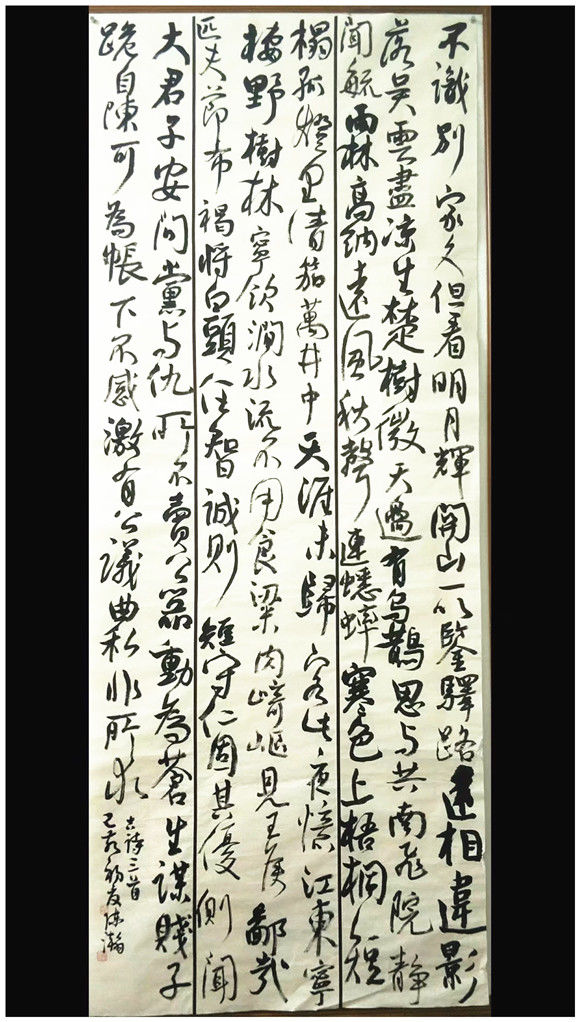 不識別家久但看明月輝關山一以鑒驛路遠相違影
落吳雲盡凉生楚樹微天邊有烏鵲思与共南飛院静
聞疏雨林高納遠風秋聲連蟋蟀寒色上梧桐短
榻孤燈里清笳萬井中天涯未歸客此夜憶江東寧
棲野樹林寧飲澗水流不用食粱肉崎嶇見王侯鄙哉
匹夫節布褐將白頭任智誠則短守仁固其優側聞
大君子安問黨与仇所不賣公器動為蒼生謀賤子
跪自陳可為帳下不感激有公議曲私非所求
古詩三首
己亥初夏陳瀚